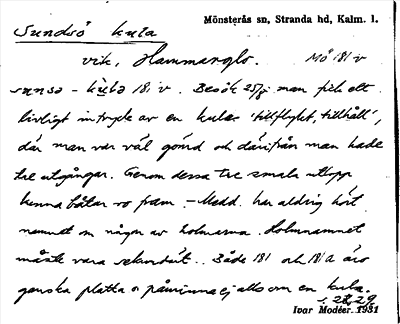 Mönsterås sn, Stranda hd, Kalm. l.
Sundsö kula
vik, Hammarglo. Mö 181 v
sunsə - kʉ̀lə 18, v. Besök 25/7 man fick ett
livligt intryck av en kula 'tillflykt, tillhåll',
där man var väl gömd och därifrån man hade
tre utgångar. Genom dessa tre smala utlopp
kunna båtar ro fram. – Medd. har aldrig hört
nämnt om någon av holmarna. Holmnamnet
måste vara sekundärt. Både 181 och 181a äro
ganska platta o påminna ej alls om en kula.
s. 28, 29
Ivar Modéer. 1931